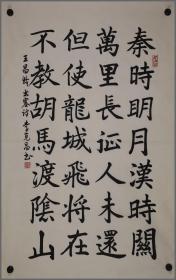 秦時明月漢時關
萬里長征人未還
但使龍城飛将在
不教胡馬渡陰山
王昌龄出塞诗